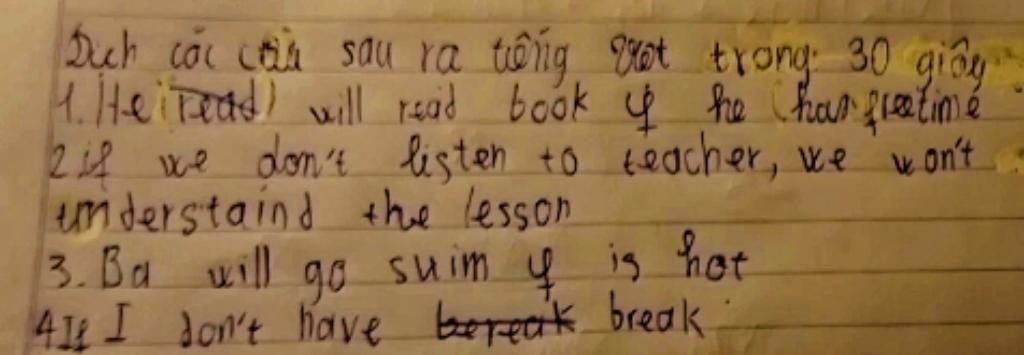 Dịch các câu sau ra tiếng việt trong 30 giây
1. He (read) will read book if he (has freetime
2 if we don't listen to teacher, we won't
understaind the lesson
3. Ba will go suim if is hot
4 If I don't have bereak break